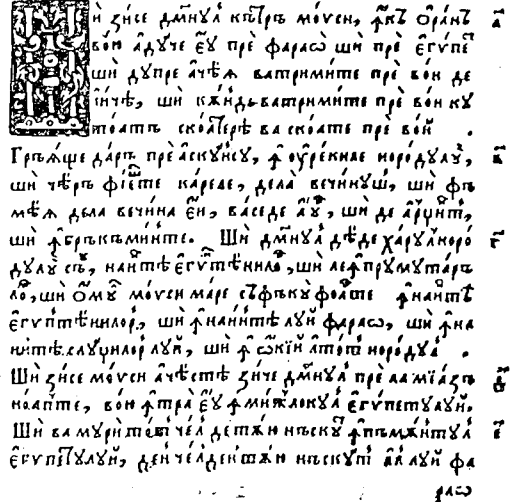 Ши зисе дм҃нꙋл кътръ мѡѵси, ꙟкъ ѡ ранъ а҃
вою адꙋче еꙋ пре фараѡ ши пре егѵпет
ши дꙋпре ачѣѧ ва тримите пре вои де
аиче, ши кѫнд ва тримите пре вои кꙋ
тоатъ скоатере ва скоате пре вои .
Гръѧще даръ пре аскꙋнсꙋ, ꙟ оурекиле нородꙋлꙋи, в҃
ши чѣръ фіеще кареле, дела вечинꙋш, ши фъ
мѣѧ дела вечина еи, васе де аꙋр, ши де арџинт,
ши ꙟбръкъминте. Ши дм҃нꙋл дѣде харꙋл норо г҃
дꙋлꙋи съꙋ, наинтѣ егѵптѣнилор, ши ле ꙟпрꙋмꙋтаръ
лор, ши ѡмꙋл мѡѵси маре съ фъкꙋ фоарте ꙟнаинтѣ
егѵптѣнилор, ши ꙟнаинтѣ лꙋи фараѡ, ши ꙟна
интѣ слꙋџилор лꙋи, ши ꙟ ѡкїи а тот нородꙋл .
Ши зисе мѡѵси ачѣстѣ зиче дм҃нꙋл пре ла мїазъ д҃
ноапте, вою ꙟтра еꙋ ꙟ мижлокꙋл егѵпетꙋлꙋи.
Ши ва мꙋри тот чел де тѫю нъскꙋт ꙟ пъмѫнтꙋл е҃
егѵпетꙋлꙋи, деи чел де нтѫю нъскꙋт ал лꙋи фа
раѡ